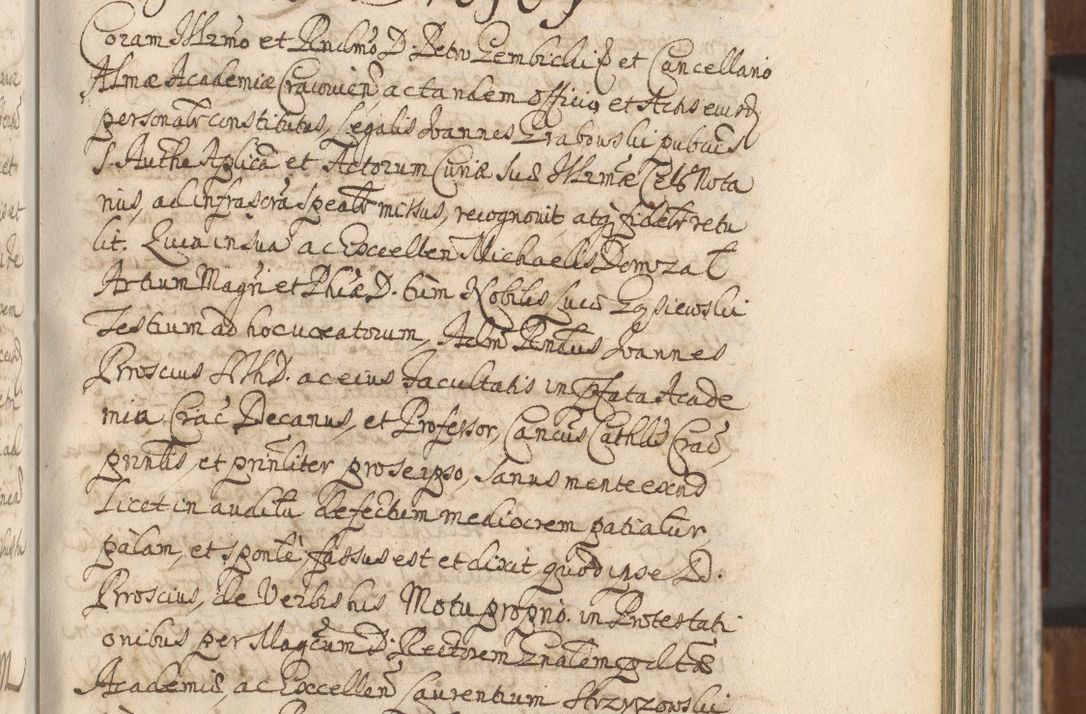 Coram Illrmo et Rndmo D. Petro Gembicki Eppo et Cancellario
Almæ Academiæ Cracovien actandem officio et Actis eiusd
personalr constitutus, Legalis Joannes Grabowski publicus
S. Authe Aplica et Actorum Curiæ Suæ Illrmæ Celsis Nota
rius, ad infrascra spealr missus, recognovit atq fidelr retu
lit. Quia in sua ac Excellen Michaelis Domoza
Artium Magri et Phiæ D. tum Nobilis Luca Gysiewski
Testium ad hoc vocatorum, Adm Rndus Joannes
Broscius SThD. ac eius Facultatis in pfata Acade
mia Crac Decanus, et Professor, Cancus Cathlis Crac,
prnntis, et prnnliter pro se ipso, sanus mente exnd
Licet in auditu defectum mediocrem patiatur
palam, et sponte fassus est et dixit quod ipse D.
Broscius, de Verbis his Motu proprio. in Protestati
onibus per Magcum D. Rectorem Gnalem pdictæ
Academiæ ac Excellen Laurentium Strzyzowski